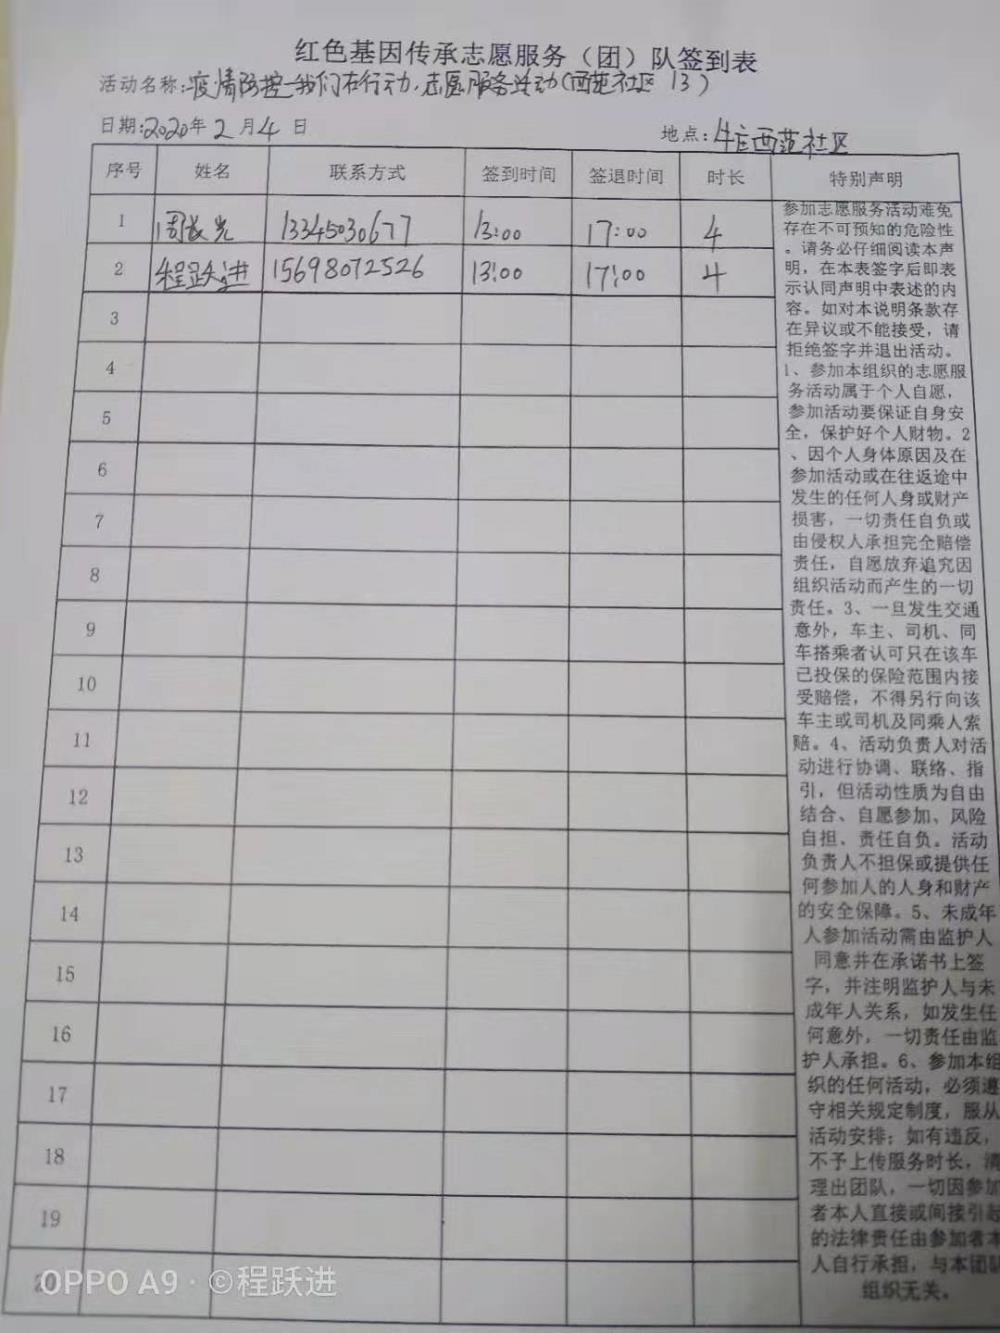 红色基因传承志愿服务（团）队签到表
活动名称:疫情防控-我们在行动,志愿服务活动(西范社区 13)
日期:2020年2月4日
地点:牛庄西范社区
序号 姓名 联系方式 签到时间 签退时间 时长 特别声明
1 周长光 13345030677 13:00 17:00 4
2 程跃进 15698072526 13:00 17:00 4
3
4
5
6
7
8
9
10
11
12
13
14
15
16
17
18
19
参加志愿服务活动难免
存在不可预知的危险性
。请务必仔细阅读本声
明，在本表签字后即表
示认同声明中表述的内
容。如对本说明条款存
在异议或不能接受，请
拒绝签字并退出活动。
1、参加本组织的志愿服
务活动属于个人自愿，
参加活动要保证自身安
全，保护好个人财物。2
、因个人身体原因及在
参加活动或在往返途中
发生的任何人身或财产
损害，一切责任自负或
由侵权人承担完全赔偿
责任，自愿放弃追究因
组织活动而产生的一切
责任。3、一旦发生交通
意外，车主、司机、同
车搭乘者认可只在该车
已投保的保险范围内接
受赔偿，不得另行向该
车主或司机及同乘人索
赔。4、活动负责人对活
动进行协调、联络、指
引，但活动性质为自由
结合、自愿参加、风险
自担、责任自负。活动
负责人不担保或提供任
何参加人的人身和财产
的安全保障。5、未成年
人参加活动需由监护人
同意并在承诺书上签
字，并注明监护人与未
成年人关系，如发生任
何意外，一切责任由监
护人承担。6、参加本组
织的任何活动，必须遵
守相关规定制度，服从
活动安排；如有违反，
不予上传服务时长，清
理出团队，一切因参加
者本人直接或间接引起
的法律责任由参加者本
人自行承担，与本团队
组织无关。
OPPO A9 · ©程跃进